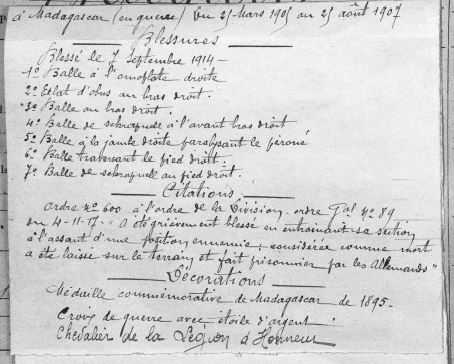 à Madagascar (en guerre) Du 25 Mars 1905 au 25 août 1907
Blessures
Blessé le 7 Septembre 1914 -
1º Balle à l'omoplate droite
2º Eclat d'obus au bras droit.
3º Balle au bras droit.
4º Balle de schrapnell à l'avant bras droit
5º Balle à la jambe droite paralysant le péroné
6º Balle traversant le pied droit.
7º Balle de schrapnell au pied droit.
Citations
Ordre nº 600 à l'ordre de la Division. ordre Gal nº 89
du 4-11-17. "A été grièvement blessé en entraînant sa section
à l'assaut d'une position ennemie ; considérée comme mort
a été laissé sur le terrain et fait prisonnier par les Allemands"
Décorations
Médaille commémorative de Madagascar de 1895-
Croix de guerre avec étoile d'argent.
Chevalier de la Légion d'Honneur